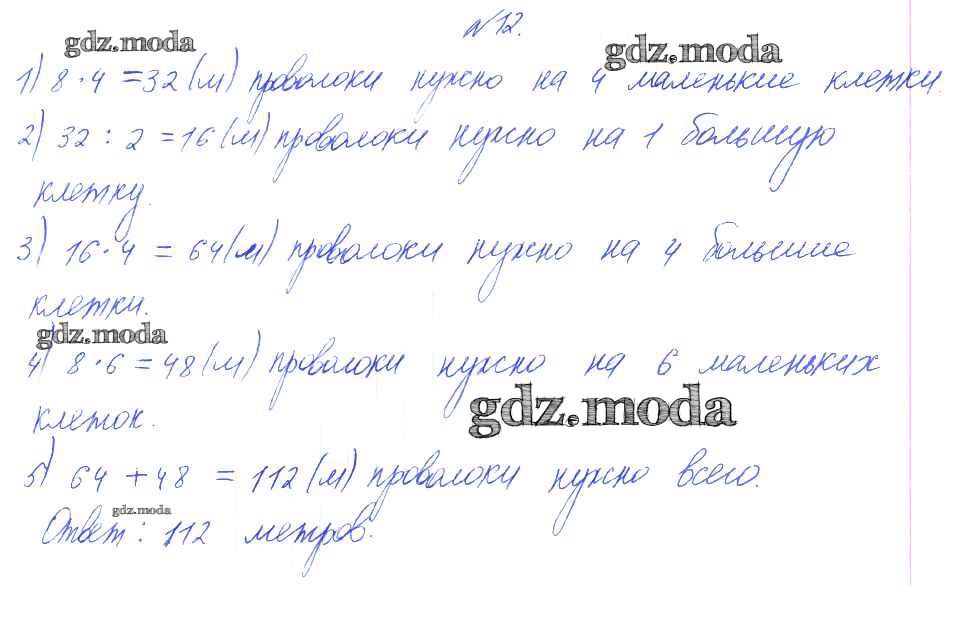 №12.
gdz.moda
gdz.moda
1) 8 · 4 = 32 (м) проволоки нужно на 4 маленькие клетки.
2) 32 : 2 = 16 (м) проволоки нужно на 1 большую
клетку.
3) 16 · 4 = 64 (м) проволоки нужно на 4 большие
клетки.
gdz.moda
4) 8 · 6 = 48 (м) проволоки нужно на 6 маленьких
gdz.moda
клеток.
5) 64 + 48 = 112 (м) проволоки нужно всего.
gdz.moda
Ответ: 112 метров.